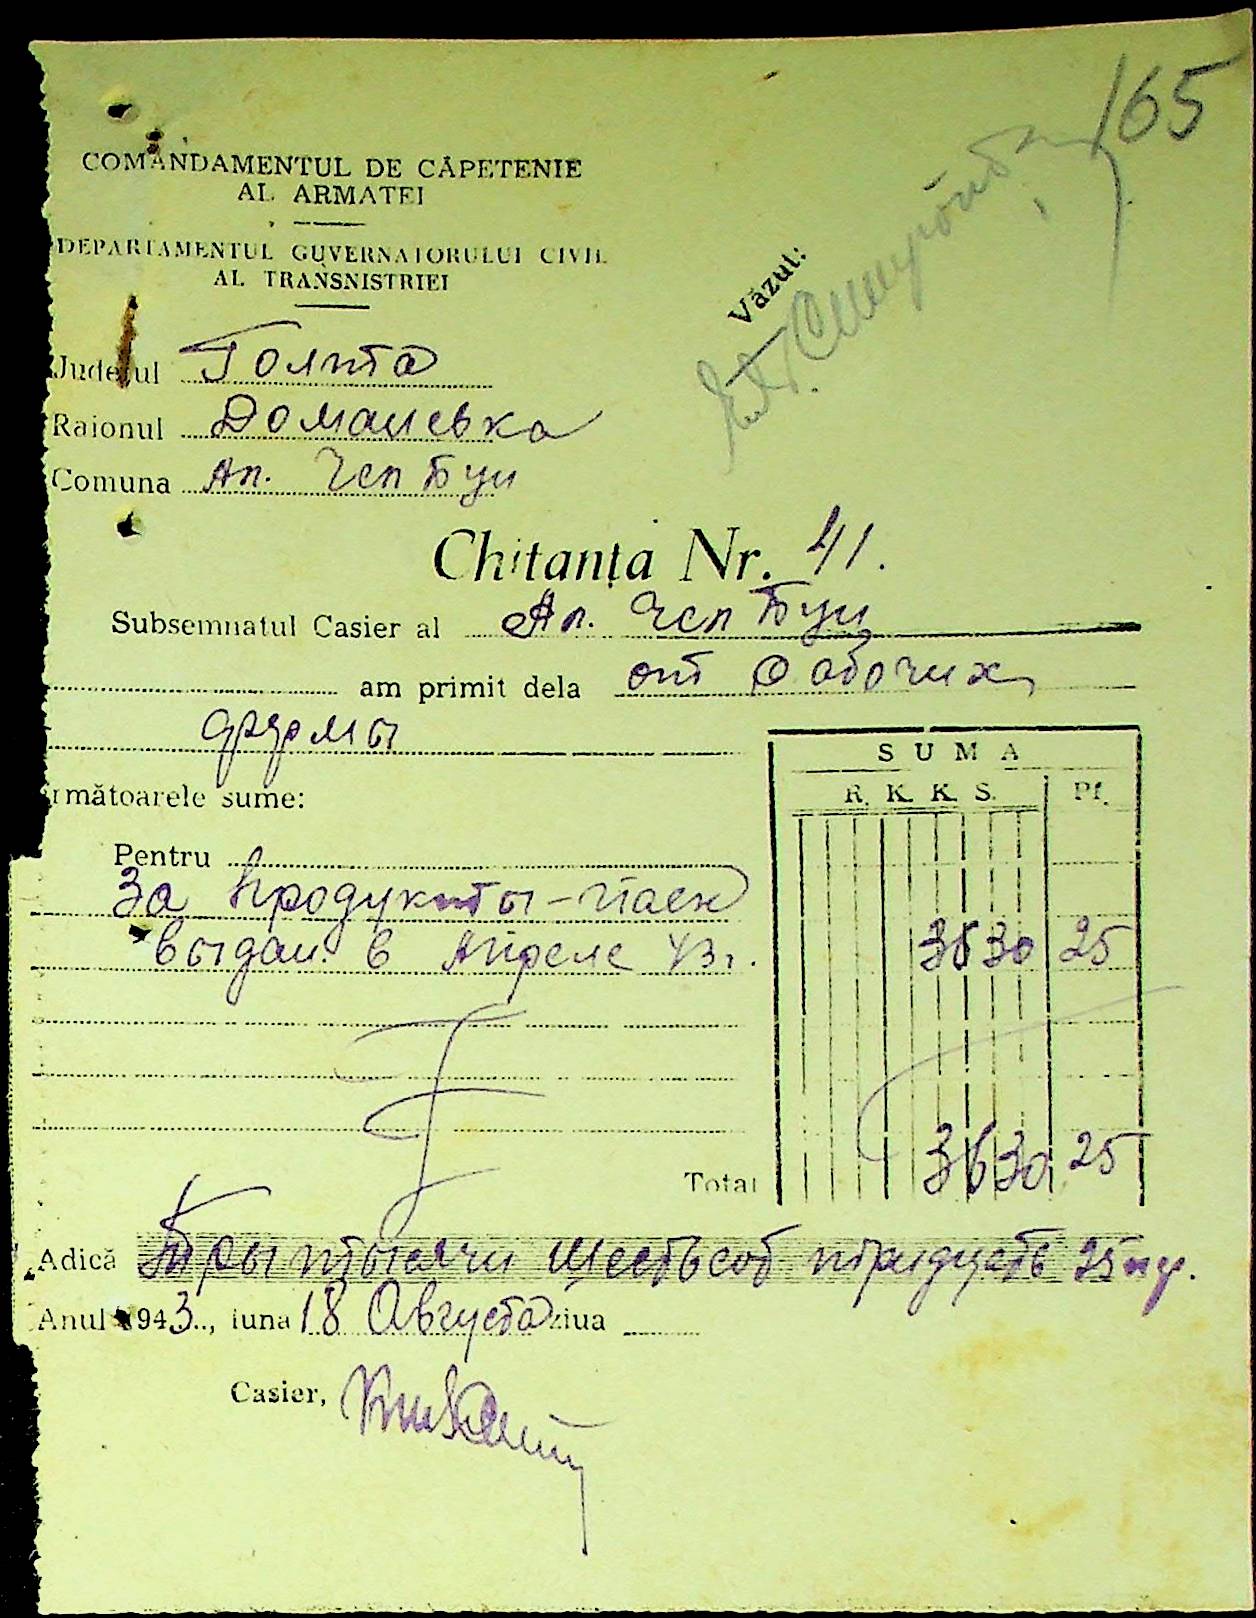 165
COMANDAMENTUL DE CĂPETENIE
AL ARMATEI
DEPARTAMENTUL GUVERNATORULUI CIVIL
AL TRANSNISTRIEI
Văzut:
Județul Голта
Raionul Доманевка
Comuna Ап.
Chitanța Nr. 41.
Subsemnatul Casier al Ап.
am primit dela от рабочих
фермы
rmătoarele sume:
SUMA
R. K. K. S. Pf.
Pentru
За продукты-паек
выдан. в Апреле 43 г. 3630 25
Total 3630 25
Adică Три тысячи шестьсот тридцать 25 пф.
Anul 1943.., luna 18 Августа ziua
Casier,